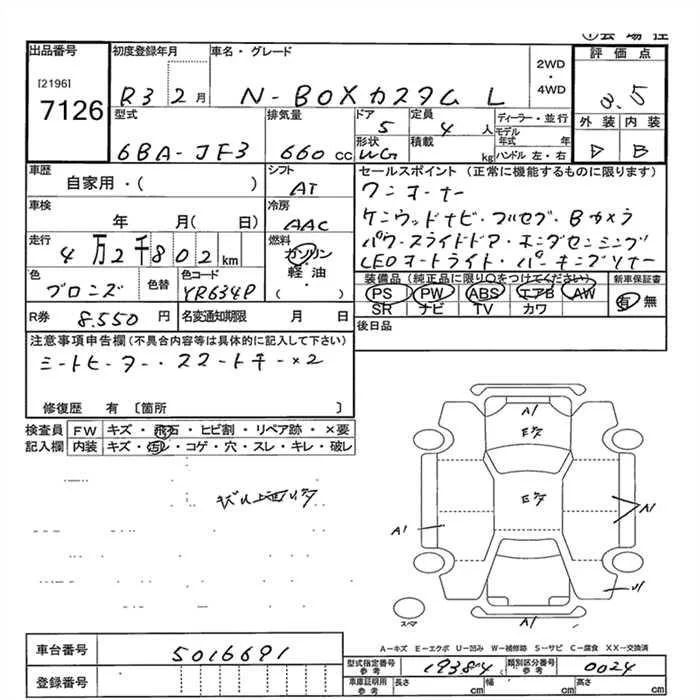 出品番号 初度登録年月 車名・グレード 2WD・4WD 評価点
[2196]
7126 R3 2月 N-BOXカスタム L 3.5
型式 排気量 ドア 定員 ディーラー・並行 外装 内装
6BA-JF3 660cc 5 4人 モデル年式 年 B
形状 積載 kg ハンドル 左・右
WG
車歴 シフト セールスポイント(正常に機能するものに限ります)
自家用・( ) AT ワンオーナー
車検 冷房 ケンウッドナビ・フルセグ・Bカメラ
年 月( 日) AAC パワースライドドア・ホンダセンシング
走行 燃料 LEDオートライト・パーキングソナー
4万2千802km ガソリン 軽油・( )
装備品(純正品に限り○をつけてください) 新車保証書
色 色替 色コード PS PW ABS エアB AW 有 無
ブロンズ YR634P SR ナビ TV カワ
R券 8.550円 名変通知期限 月 日 後日品
注意事項申告欄(不具合内容等は具体的に記入して下さい)
シートヒーター・スマートキー×2
修復歴 有〔箇所 〕
検査員 FW キズ・飛石・ヒビ割・リペア跡・×要
記入欄 内装 キズ・汚レ・コゲ・穴・スレ・キレ・破レ
A1
Eｱﾘ
Eｱﾘ
A1
A1
スマ A1
A-キズ E-エクボ U-凹み W-補修跡 S-サビ C-腐食 XX-交換済
車台番号 5016691
型式指定番号 参考 19384 類別区分番号 参考 0024
登録番号
車庫証明用 参考 長さ cm 幅 cm 高さ cm